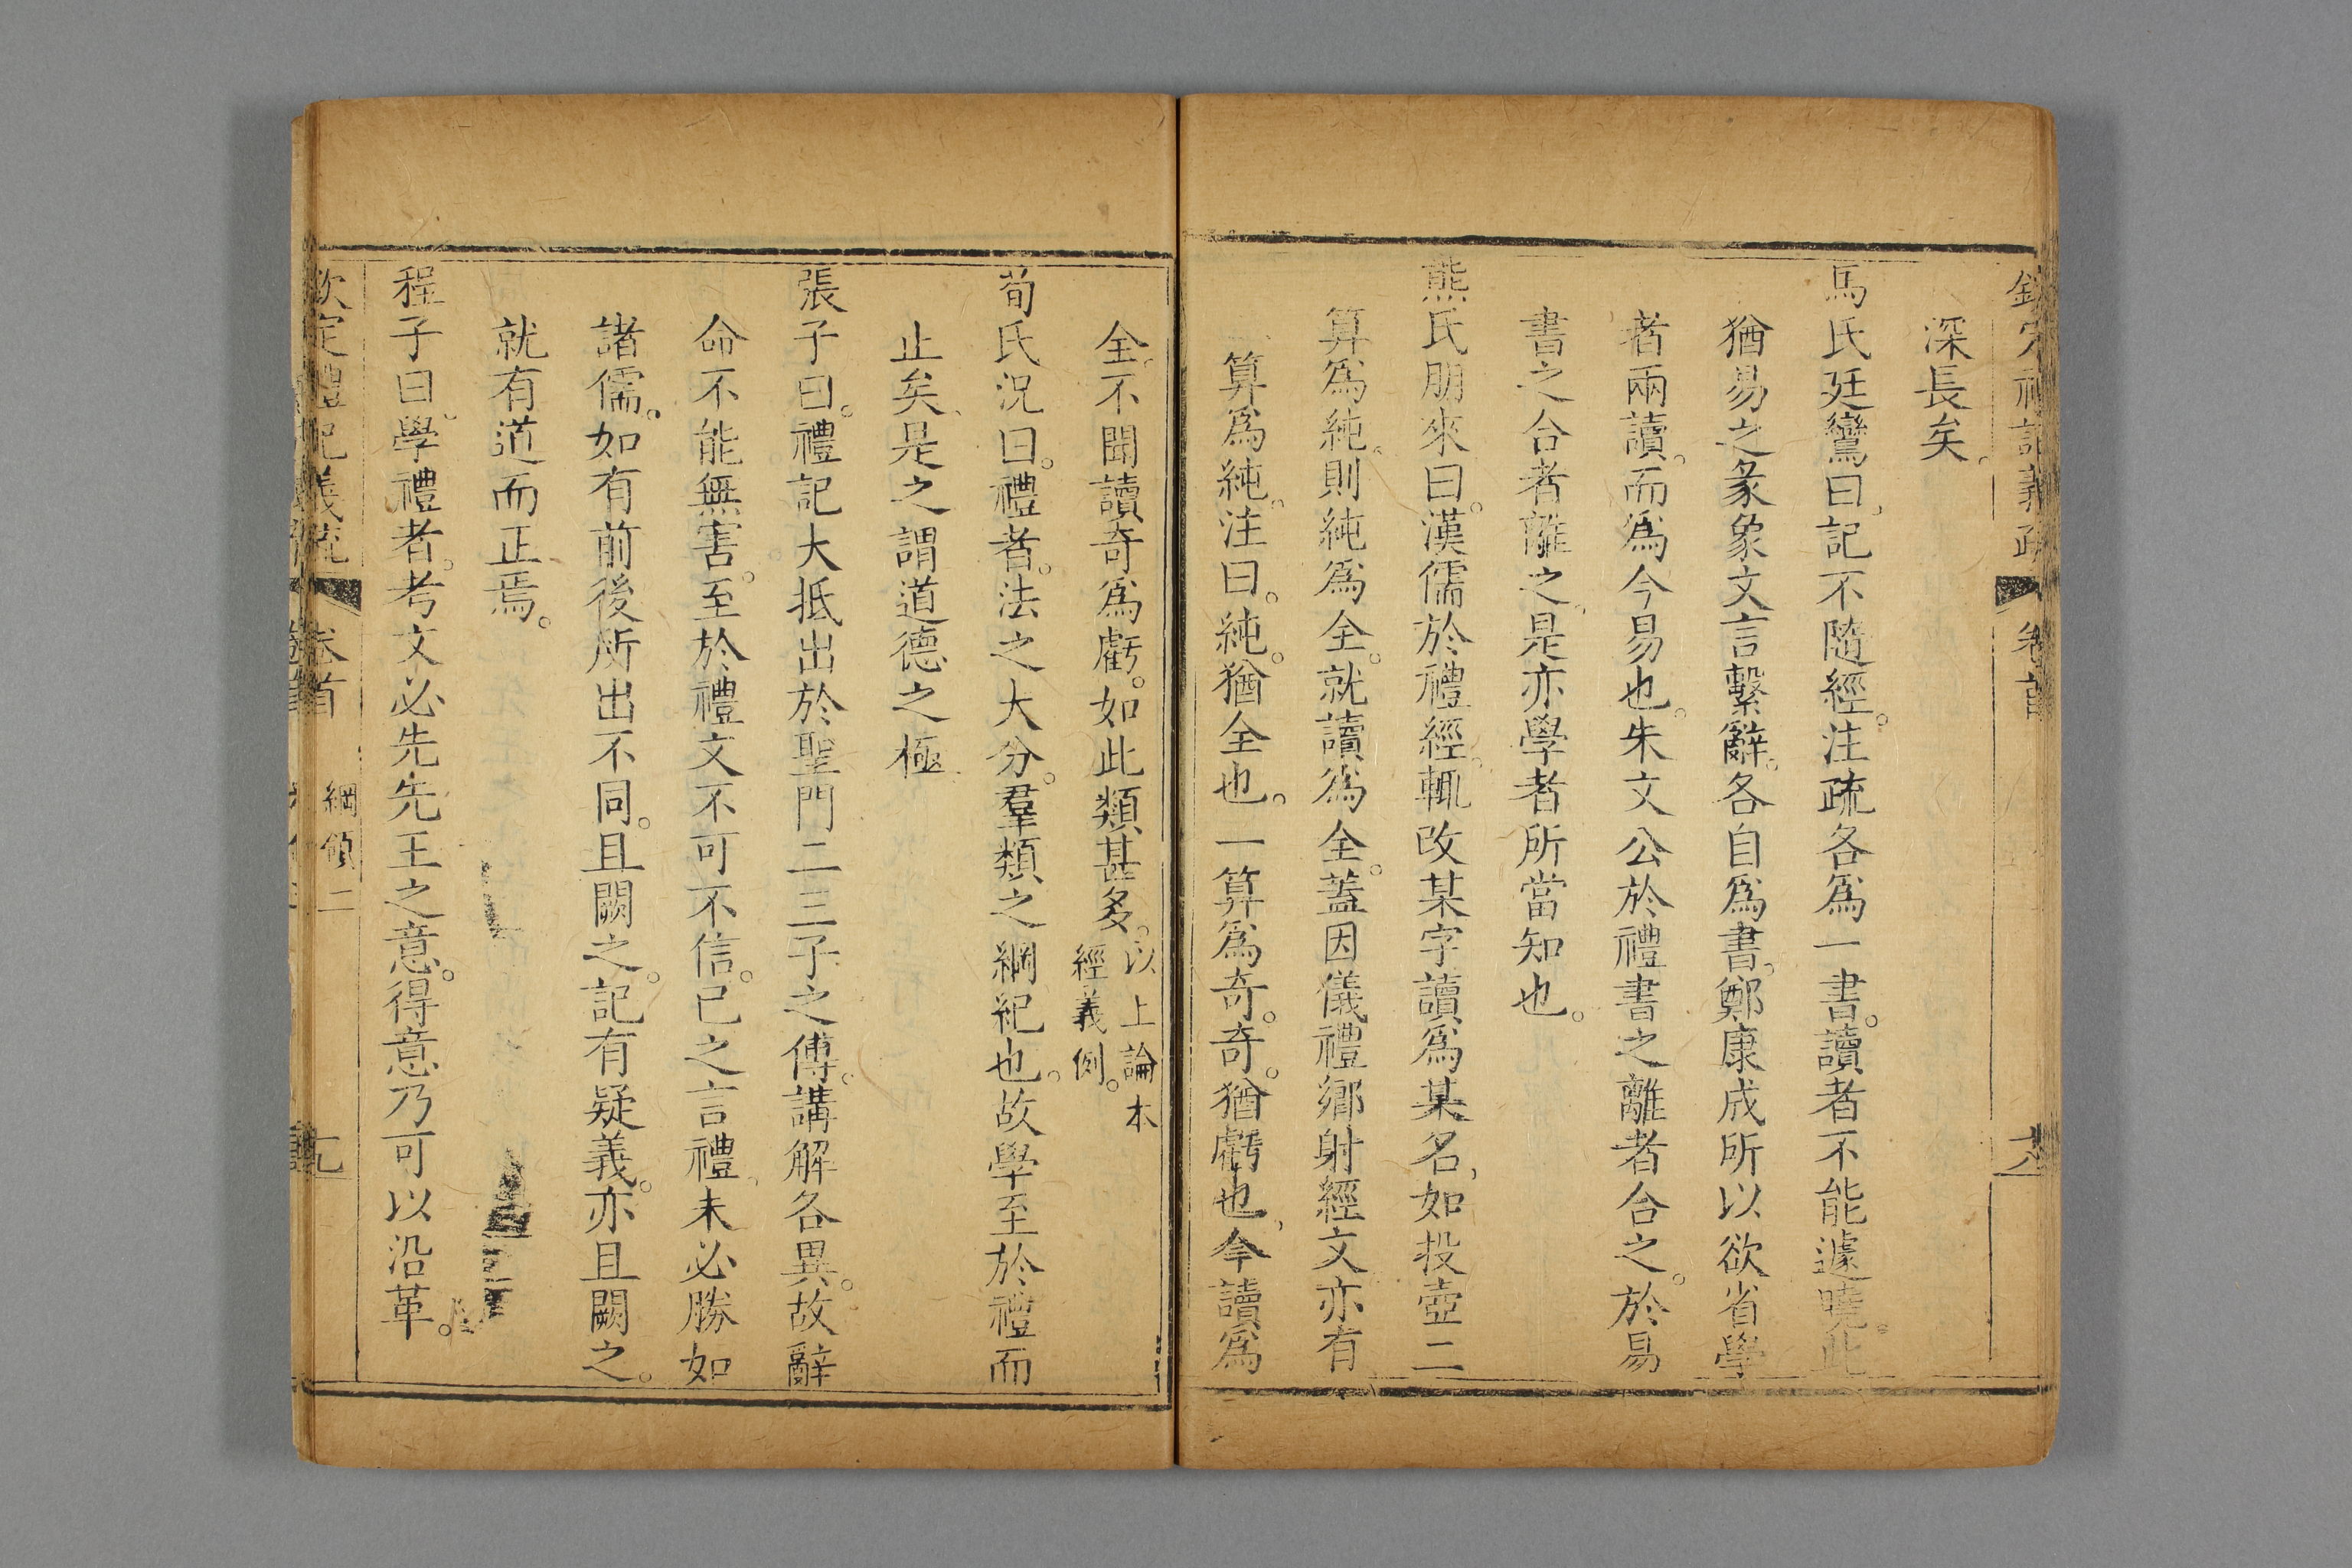 欽定禮記義疏 卷首 大
深長矣。
馬氏廷鸞曰。記不隨經。注疏各爲一書。讀者不能遽曉。此
猶易之彖象文言繫辭。各自爲書。鄭康成所以欲省學
者兩讀。而爲今易也。朱文公於禮書之離者合之。於易
書之合者離之。是亦學者所當知也。
熊氏朋來曰。漢儒於禮經。輒改某字讀爲某名。如投壺二
算爲純。則純爲全。就讀爲全。蓋因儀禮鄉射經文亦有
算爲純。注曰。純。猶全也。一算爲奇。奇。猶虧也。今讀爲
全。不聞讀奇爲虧。如此類甚多。以上論本
經義例。
荀氏況曰。禮者。法之大分。羣類之綱紀也。故學至於禮而
止矣。是之謂道德之極
張子曰。禮記大抵出於聖門二三子之傳。講解各異。故辭
命不能無害。至於禮文不可不信。已之言禮。未必勝如
諸儒。如有前後所出不同。且闕之。記有疑義。亦且闕之。
就有道而正焉。
程子曰。學禮者。考文必先先王之意。得意乃可以沿革。
欽定禮記義疏 卷首 綱領二